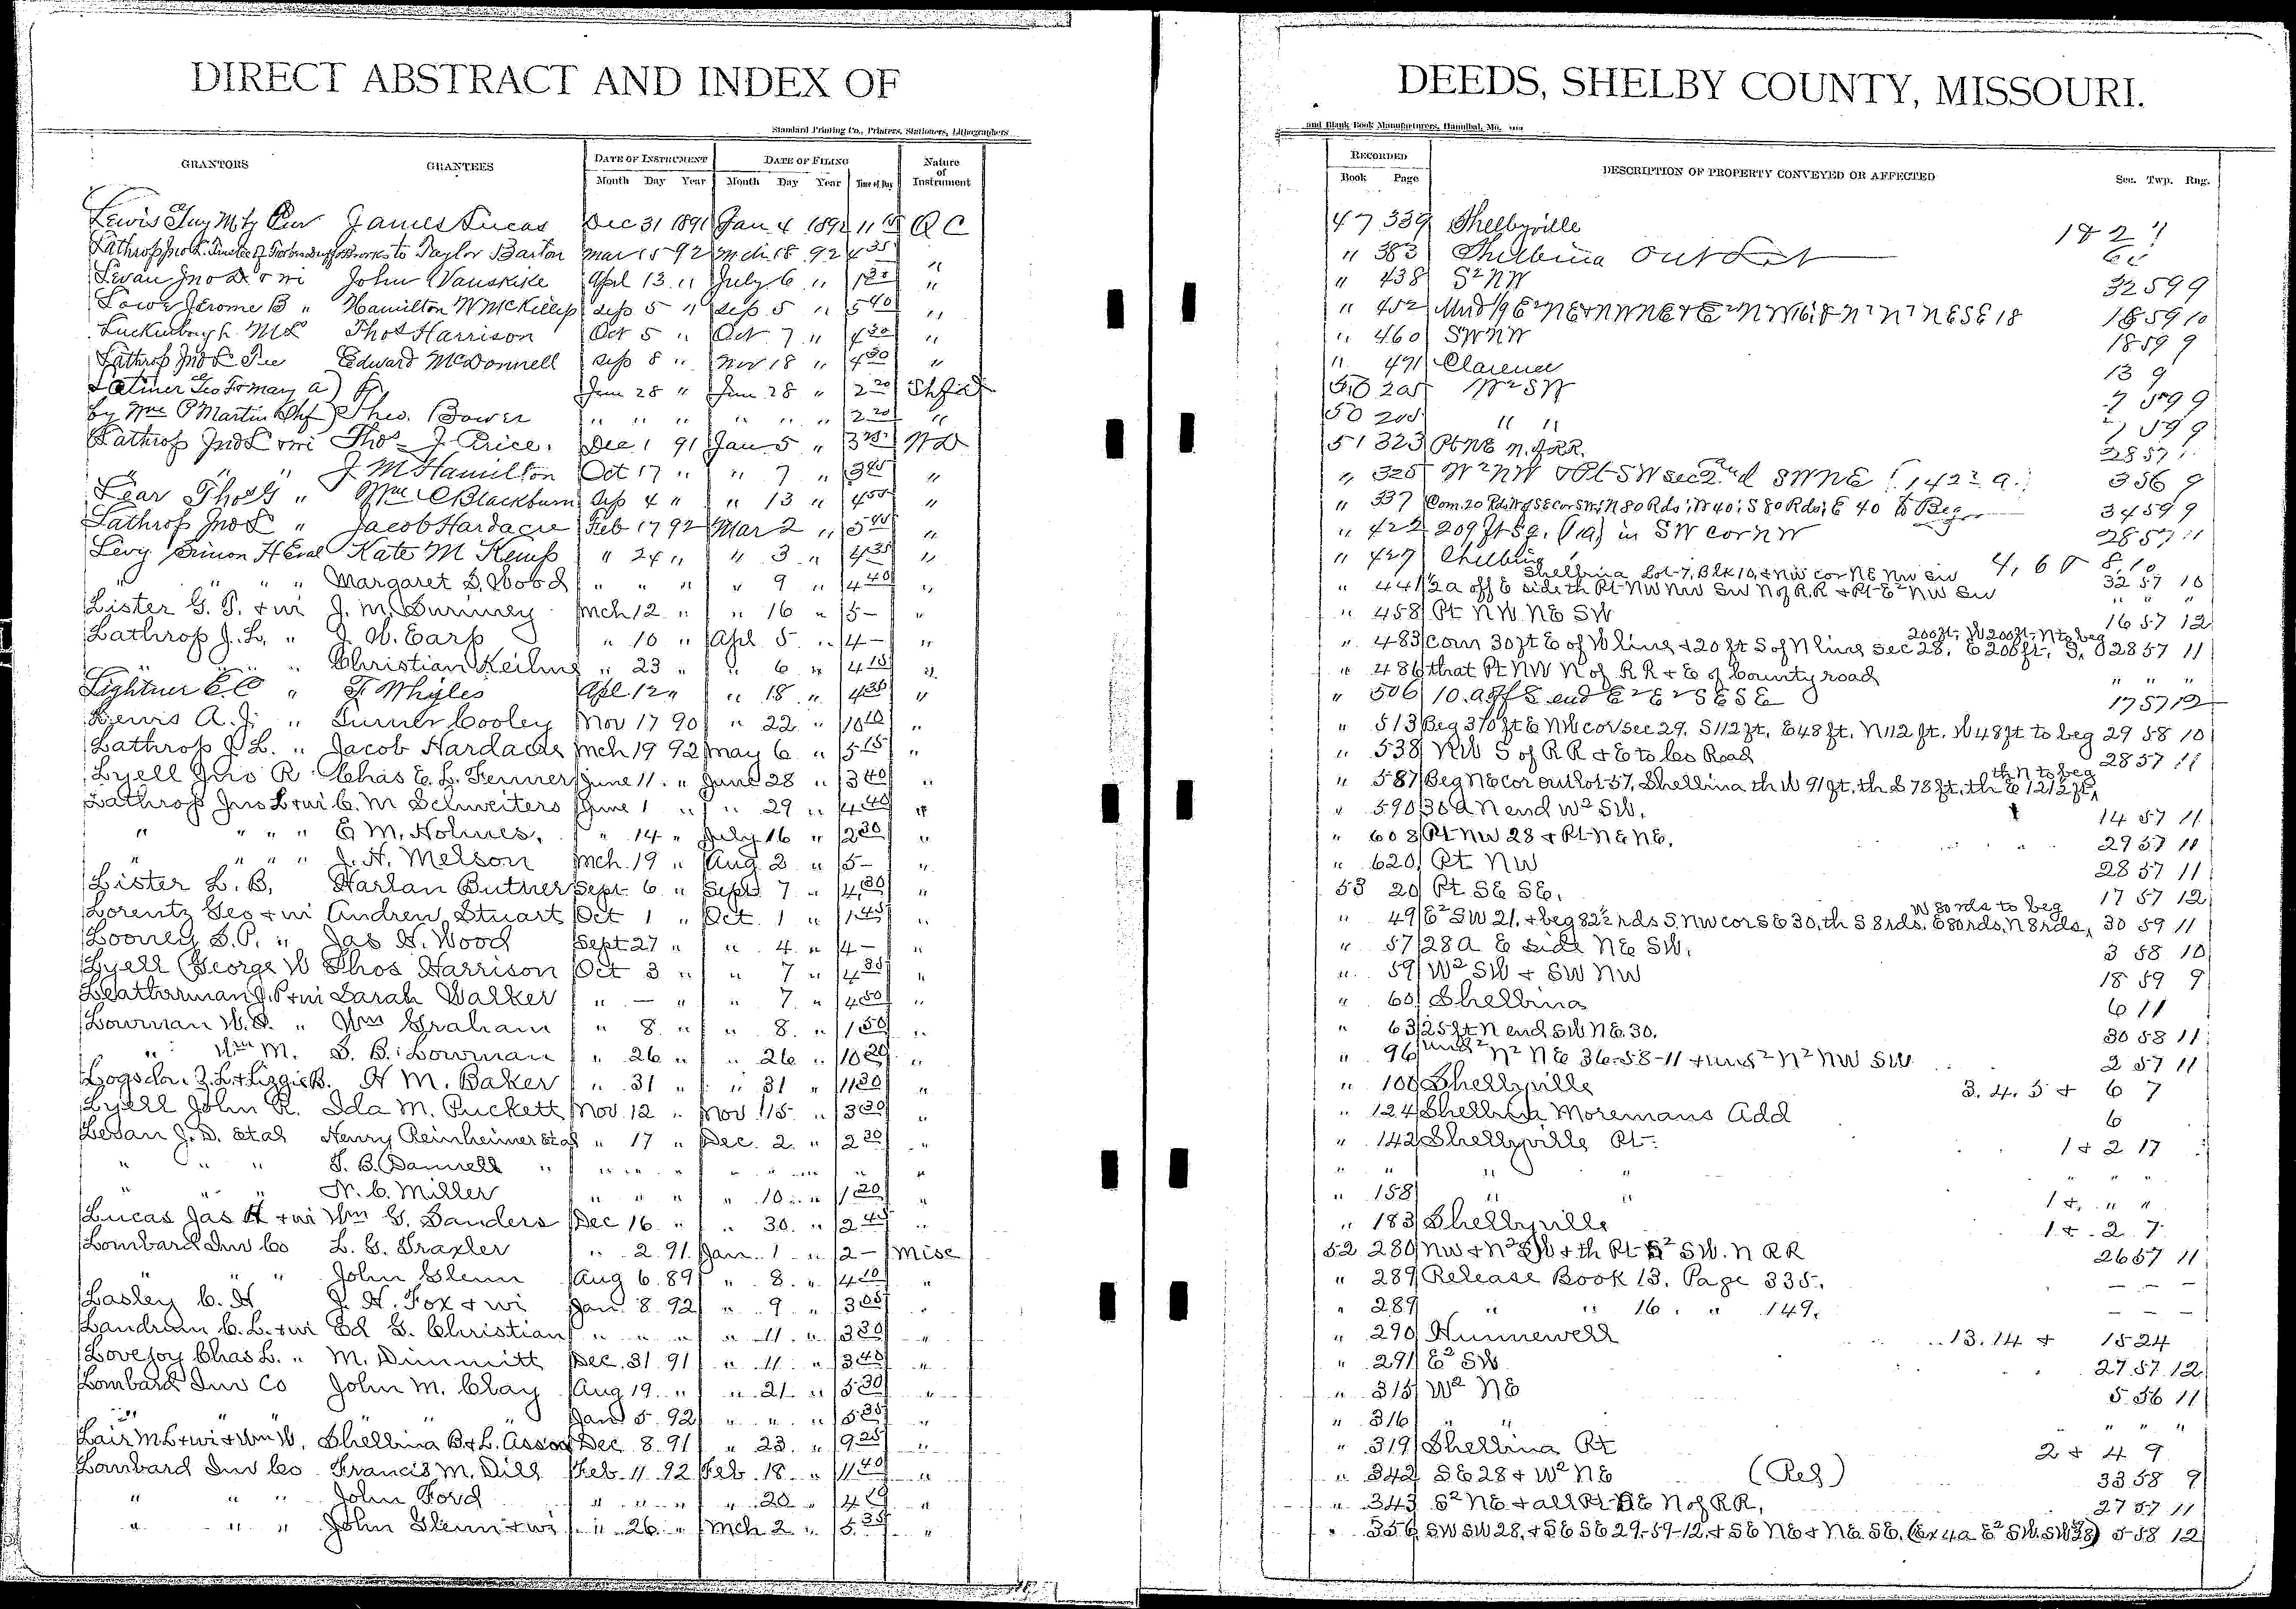 DIRECT ABSTRACT AND INDEX OF
Standard Printing Co., Printers, Stationers, Lithographers
GRANTORS GRANTEES DATE OF INSTRUMENT DATE OF FILING Nature of Instrument
Month Day Year Month Day Year Time of Day
Lewis Guy M by Cur James Lucas Dec 31 1891 Jan 4 1892 11 Q C
Lathrop Jno L. Trustee to Taylor Barton Mar 15 92 Mch 18 92 4 35 "
Levan Jno D & wi John Vanskike Apl 13 " July 6 " 1 "
Lowe Jerome B " Hamilton W McKillip Sep 5 " Sep 5 " 5 40 "
Luckenbough M L Thos Harrison Oct 5 " Oct 7 " 4 30 "
Lathrop Jno L Tee Edward McDonnell Sep 8 " Nov 18 " 4 30 "
Latimer Geo F & Mary A Jun 28 " Jun 28 " 2 20 Shf d
by Wm P Martin Shf Theo. Bower " " " " " " 2 20 "
Lathrop Jno L & wi Thos J. Price. Dec 1 91 Jan 5 " 3 W D
" " " J M Hamilton Oct 17 " " 7 " 3 40 "
Lear Thos G " Wm C Blackburn Sep 4 " " 13 " 4 "
Lathrop Jno L " Jacob Hardacre Feb 17 92 Mar 2 " 5 "
Levy Simon H Eval Kate M Kemp " 24 " " 3 " 4 35 "
" " " " Margaret S. Wood " " " " 9 " 4 40 "
Lister G. P. & wi J. M. Surinney Mch 12 " " 16 " 5 - "
Lathrop J. L. " J. W. Earp " 10 " Apl 5 " 4 - "
" " " Christian Keiling " 23 " " 6 " 4 15 "
Lightner E C " F. Whyles Apl 12 " " 18 " 4 35 "
Lewis A. J. " Turner Cooley Nov 17 90 " 22 " 10 10 "
Lathrop J L. " Jacob Hardacre Mch 19 92 May 6 " 5 15 "
Lyell Jno R Chas E. L. Fenner June 11 " June 28 " 3 40 "
Lathrop Jno L & wi C. M Schweiters June 1 " " 29 " 4 40 "
" " " " E M. Holmes. " 14 " July 16 " 2 30 "
" " " " J. H. Melson Mch. 19 " Aug 2 " 5 - "
Lister L. B. Harlan Butner Sept 6 " Sept 7 " 4 30 "
Lorentz Geo & wi Andrew Stuart Oct 1 " Oct. 1 " 1 45 "
Looney S. P. " Jas H. Wood Sept 27 " " 4 " 4 - "
Lyell George W Thos Harrison Oct 3 " " 7 " 4 35 "
Leatherman J. P & wi Sarah Walker " - " " 7 " 4 50 "
Lowman W. S. " Wm Graham " 8 " " 8 " 1 50 "
" Wm M. S. B. Lowman " 26 " " 26 " 10 20 "
Logsdon Z. L & Lizzie B. H M. Baker " 31 " " 31 " 11 30 "
Lyell John R. Ida M. Puckett Nov. 12 " Nov 15 " 3 30 "
Levan J. D. et al Henry Reinheimer et al " 17 " Dec. 2 " 2 20 "
" " " T. B. Damrell " " " " " " " "
" " " N. C. Miller " " " " 10 " 1 20 "
Lucas Jas H & wi Wm G. Sanders Dec 16 " " 30 " 2 45 "
Lombard Inv Co L. G. Traxler " 2 91 Jan 1 " 2 - Misc
" " " John Glenn Aug 6 89 " 8 " 4 10 "
Lasley C. H J. H. Fox & wi Jan 8 92 " 9 " 3 05 "
Landrum C. L. & wi Ed G. Christian " " " " 11 " 3 30 "
Lovejoy Chas L. " M. Dimmitt Dec. 31 91 " 11 " 3 40 "
Lombard Inv Co John M. Clay Aug 19 " " 21 " 5 30 "
" " " " Jan 5 92 " " " 5 35 "
Lair M L & wi & Wm W. Shelbina B & L. Assoc Dec 8 91 " 23 " 9 25 "
Lombard Inv Co Francis M. Dill Feb 11 92 Feb 18 " 11 40 "
" " " John Ford " " " " 20 " 4 "
" " " John Glenn & wi " 26 " Mch 2 " 5 35 "
DEEDS, SHELBY COUNTY, MISSOURI.
and Blank Book Manufacturers, Hannibal, Mo.
RECORDED DESCRIPTION OF PROPERTY CONVEYED OR AFFECTED Sec. Twp. Rng.
Book Page
47 339 Shelbyville 1 & 2
" 383 Shelbina Out Lot
" 438 S² NW 32 59 9
" 452 18 59 10
" 460 SW NW 18 59 9
" 471 Clarence 13 9
50 205 W² SW 7 59 9
50 205 " " 7 59 9
51 323 Pt NE N. of RR. 28 57 11
" 325 W² NW & Pt SW Sec 2 SW NE 3 56 9
" 337 Com. 20 Rds W of SE Cor SW; N 80 Rds; W 40; S 80 Rds; E 40 to Beg 34 59 9
" 422 209 ft Sq. (1a) in SW cor NW 28 57 11
" 427 Shelbina 4, 6
" 441 Shelbina Lot 7, Blk 10, & NW cor NE NW SW 32 57 10
½ a off E side th Pt NW NW SW N of R.R & Pt E² NW SW " " "
" 458 Pt NW NE SW 16 57 12
" 483 Com 30 ft E of W line & 20 ft S of N line Sec 28. E 200 ft, S. 200 ft, W 200 ft, N to beg 28 57 11
" 486 that Pt NW N of R R & E of County road " " "
" 506 10 a off S end E² E² SE SE 17 57 12
" 513 Beg 310 ft E NW cor Sec 29. S 112 ft. E 48 ft. N 112 ft. W 48 ft to beg 29 58 10
" 538 NW S of R R & E to Co Road 28 57 11
" 587 Beg NE cor out Lot 57, Shelbina th W 91 ft. th S 78 ft. th E 121½ ft. th N to beg
" 590 30 a N end W² SW. 14 57 11
" 608 Pt NW 28 & Pt NE NE. 29 57 11
" 620 Pt NW 28 57 11
53 20 Pt SE SE. 17 57 12
" 49 E² SW 21, & beg 82½ rds S. NW cor SE 30, th S 8 rds. E 80 rds, N 8 rds, W 80 rds to beg 30 59 11
" 57 28 A E side NE SW. 3 58 10
" 59 W² SW & SW NW 18 59 9
" 60 Shelbina 6 11
" 63 25 ft N end SW NE 30. 30 58 11
" 96 und² N² NE 36-58-11 & und² N² NW SW 2 57 11
" 100 Shelbyville 3. 4. 5 & 6 7
" 124 Shelbina Moremans Add 6
" 142 Shelbyville Pt. 1 & 2 17
" " " " " " "
" 158 " " 1 & " "
" 183 Shelbyville 1 & 2 7
52 280 NW & N² SW & th Pt S² SW. N RR 26 57 11
" 289 Release Book 13. Page 335. - - -
" 289 " " 16 . " 149. - - -
" 290 Hunnewell 13. 14 & 15 24
" 291 E² SW 27 57 12
" 315 W² NE 5 56 11
" 316 " " " " "
" 319 Shelbina Pt 2 & 4 9
" 342 SE 28 & W² NE (Rel) 33 58 9
" 343 S² NE & all Pt NE N of RR, 27 57 11
" 356 SW SW 28, & SE SE 29-59-12, & SE NE & NE SE, (Ex 4a E² SW. SW 28) 5 58 12